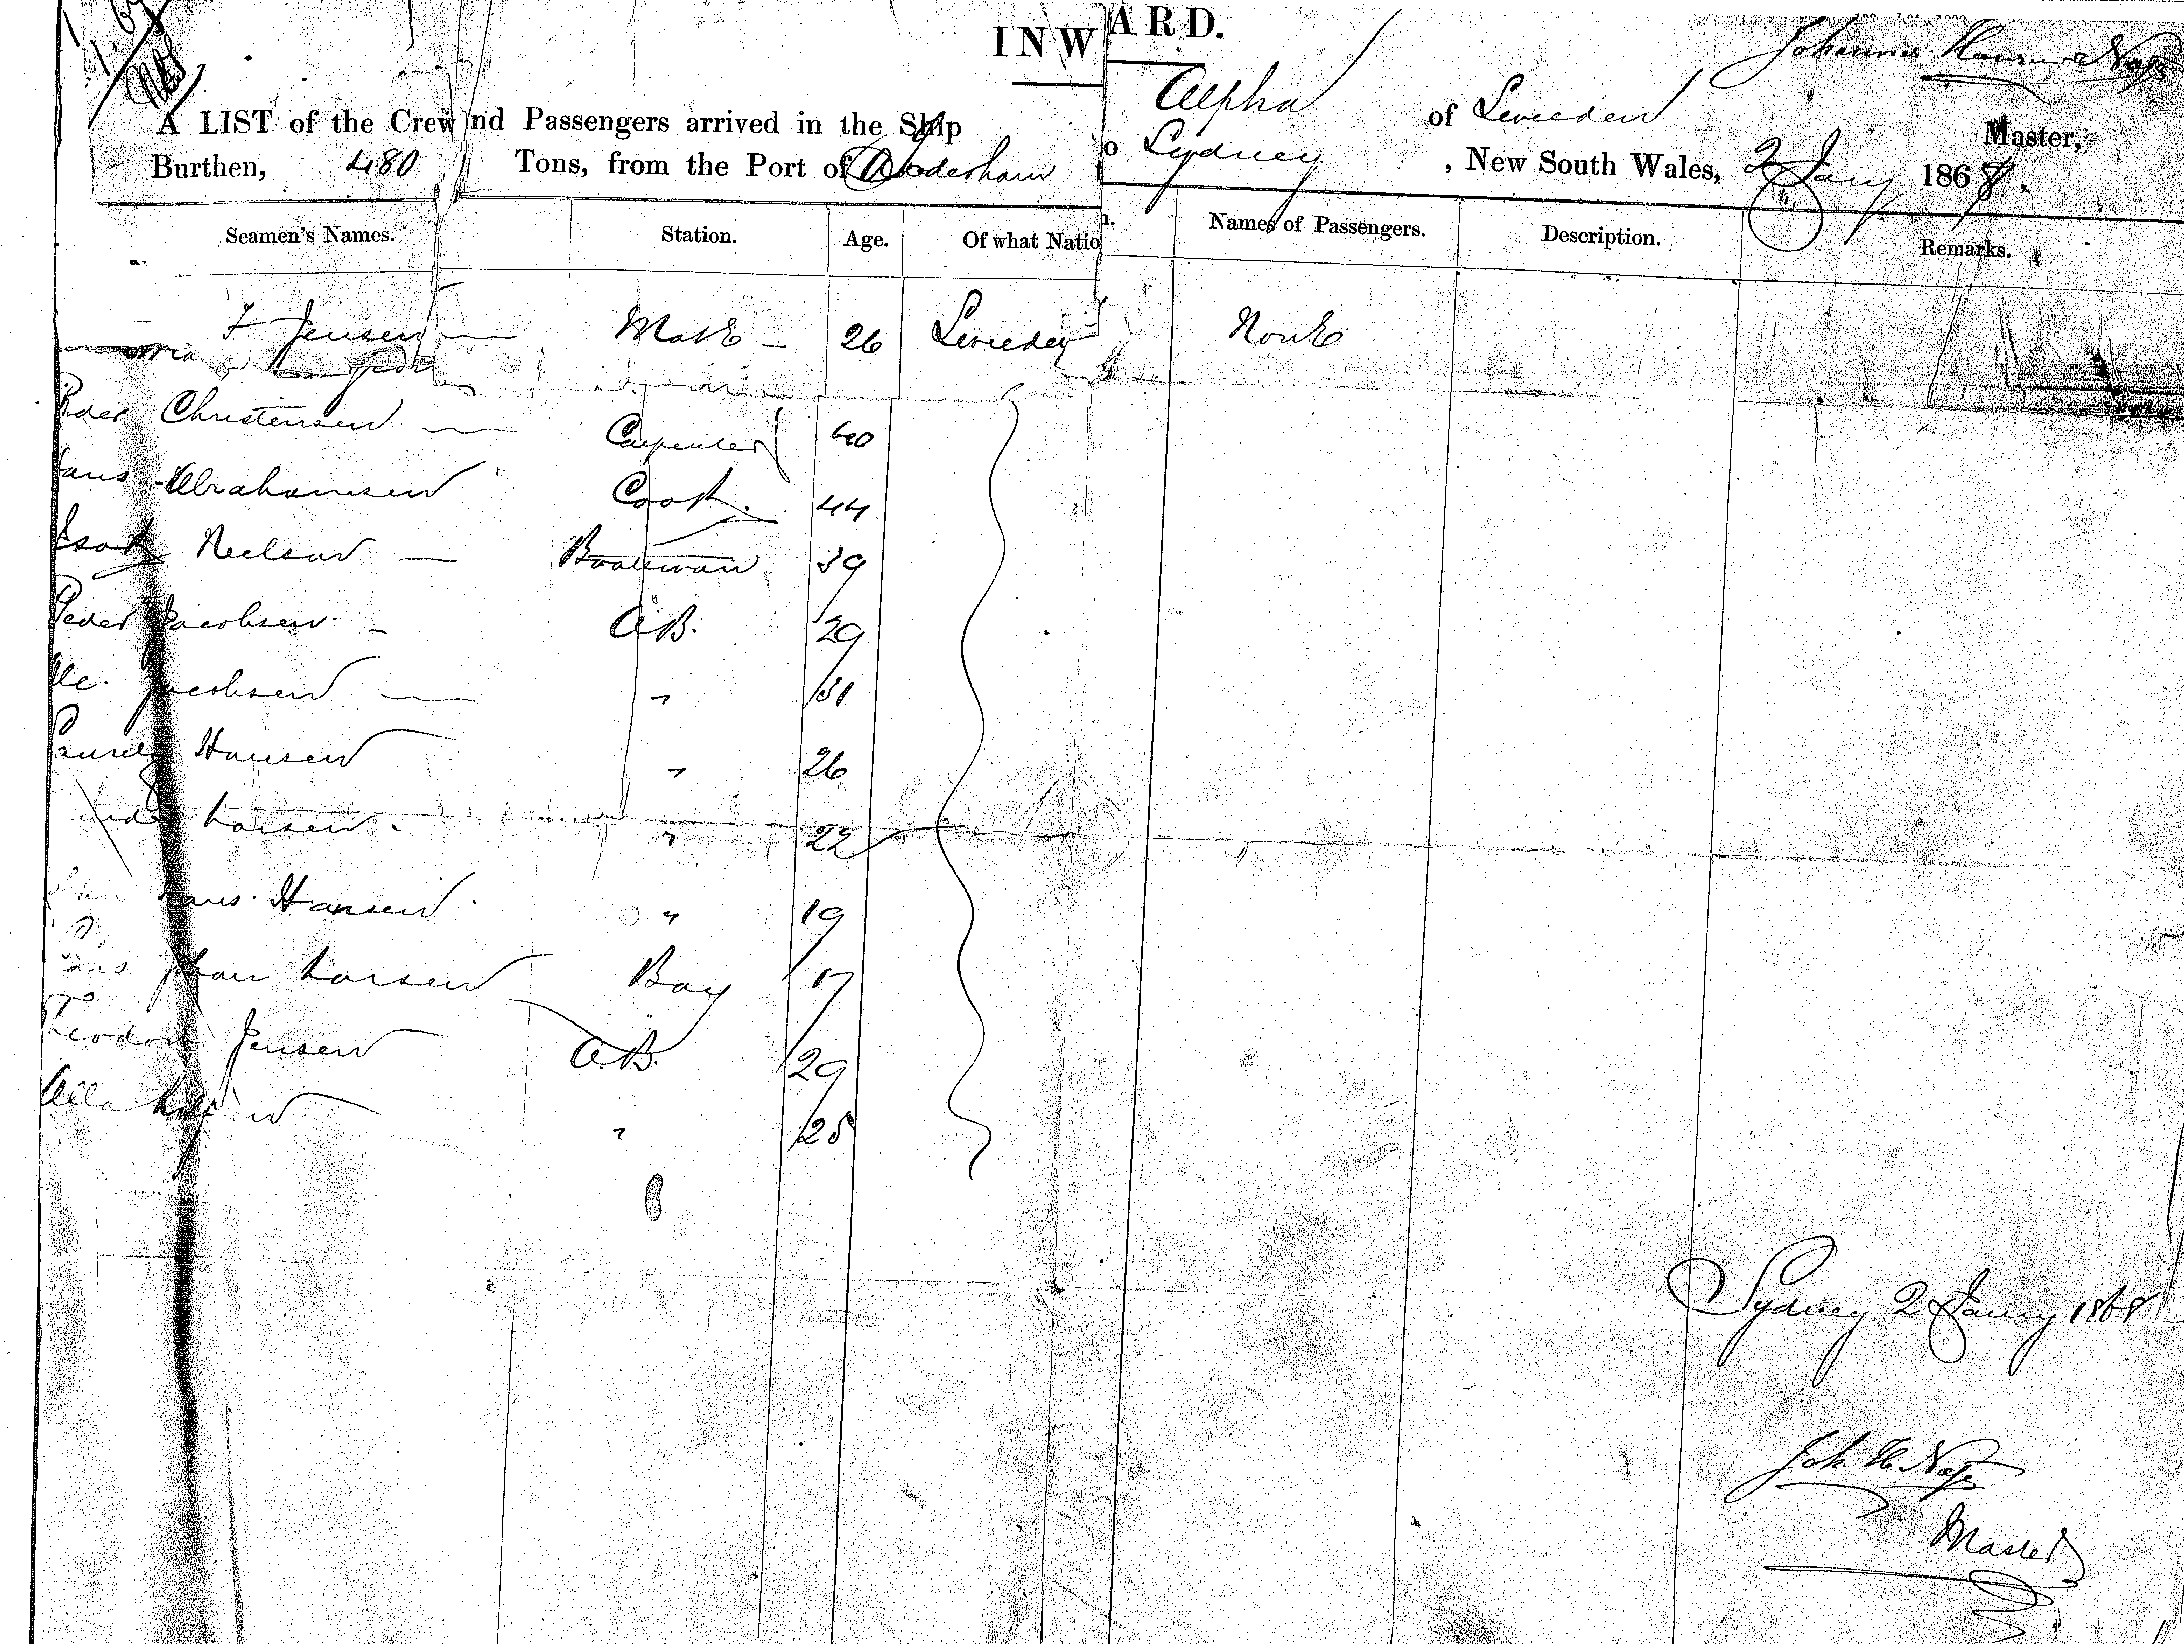 INWARD.
A LIST of the Crew and Passengers arrived in the Ship Alpha of Sweeden Johannes Master,
Burthen, 480 Tons, from the Port of to Sydney, New South Wales, 2 Jany 1868.
Seamen's Names. Station. Age. Of what Nation. Names of Passengers. Description. Remarks.
F Jensen Mate 26 Sweeden None
Peder Christensen Carpenter 40
Hans Abrahamsen Cook 44
Isak Neelsen 39
Peder Jacobsen AB. 29
Ole Jacobsen " 31
Hansen " 26
Larsen " 22
Hans Hansen " 19
Hans Johan Larsen Boy 17
Theodor Jensen AB. 29
" 25
Sydney 2 January 1868
Joh. H.
Master